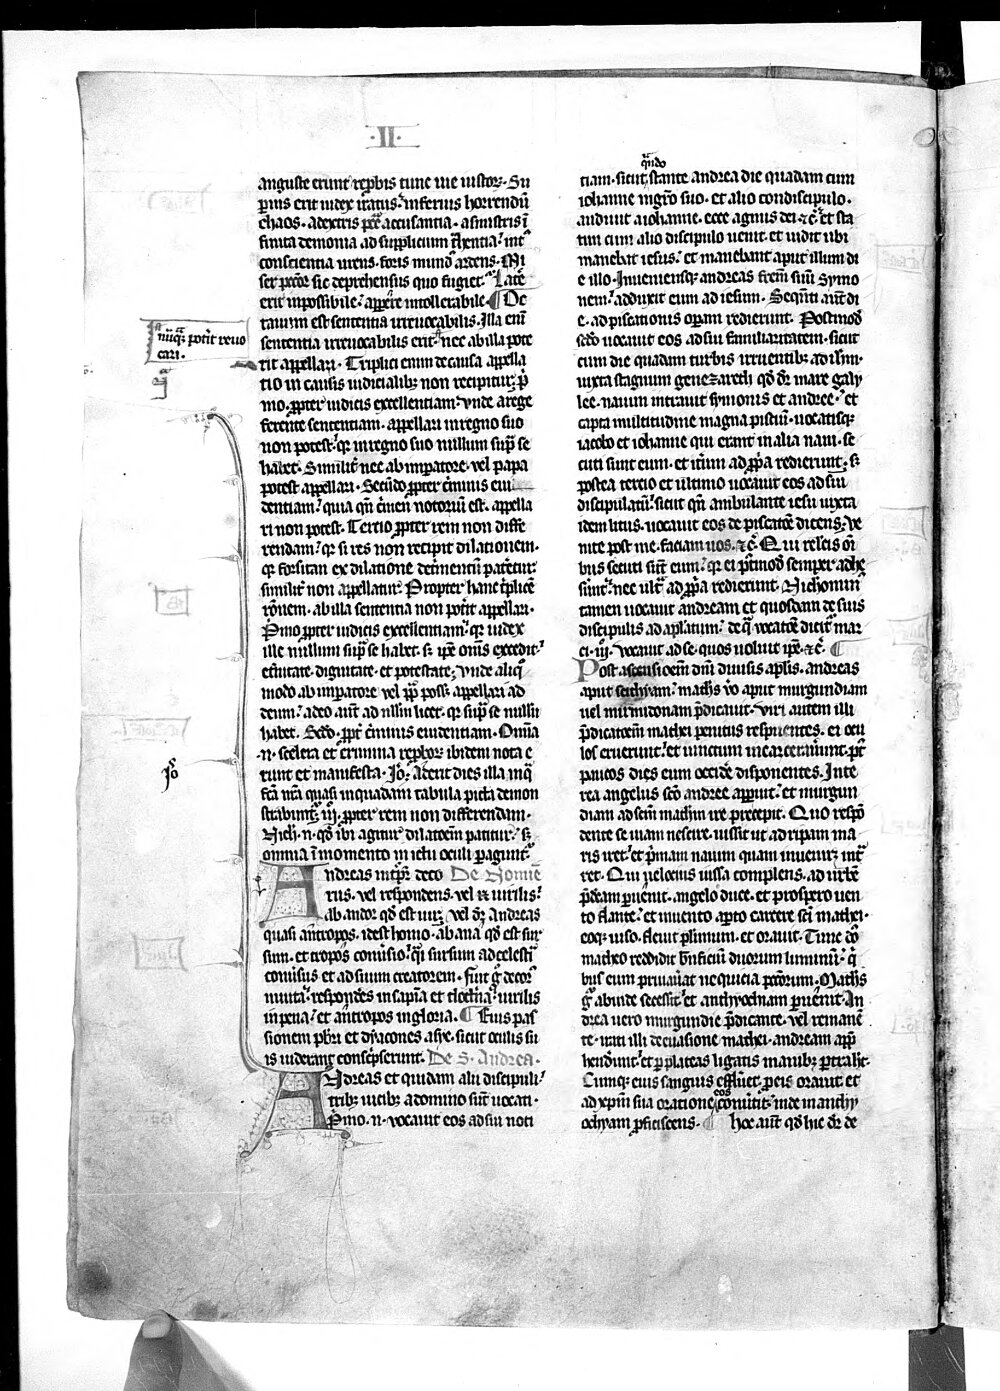 ·II·
anguste erunt rep̄bis tunc uie iustoꝝ· Su
perius erit iudex iratus· inferius horrendū
chaos· a dextris pctā accusantia· a sinistris ī
finita demonia ad supplicium tͣhentia· int̄
conscientia urens· foris mund᷒ ardens· Mi
ser pctōr sic deprehensus quo fugiet· Latē
erit inpossibile· appēre intollerabile· ¶ De
tauum est sententia irreuocabilis· Illa enī
nūqͣꝫ potit reuo
cari·
sententia irreuocabilis erit· nec ab illa pote
rit appellari· Triplici enim de causa appella
tio in causis iudicialibꝫ non recipitur· p̄
mo ꝓpter iudicis excellentiam· Vnde a rege
ferente sententiam· appellari in regno suo
non potest· qꝛ in regno suo nullum sup̄ se
habet· Similit̄ nec ab imꝑatore· vel papa
potest appellari· Secūdo ꝓpter c̄minis eui
dentiam· quia qn̄ c̄men notoriū est· appella
ri non potest· Tertio ꝓpter rem non diffe
rendam· qꝛ si res non recipit dilationem·
qꝛ forsitan ex dilatione det̄mentū pateretur
similit̄ non appellatur· Propter hanc t̄plicē
rōnem· ab illa sententia non potit appellari·
Pͥmo ꝓpter iudicis excellentiam· qꝛ iudex
ille nullum sup̄ se habet· sꝫ ipē om̄s excedit·
et̄nitate· dignitate· et potestate· Vnde aliqͦ
modo ab imꝑatore vel pp̄ poss· appellari ad
deum· a deo aut̄ ad nllm̄ licet· qꝛ sup̄ se nullū
habet· Scdo· ꝓpt̄ c̄minis euidentiam· Omīa
·n· scelera et crimina rep̄boꝝ ibidem nota e
runt et manifesta· Jo᷒· Aderit dies illa in qͣ
Jo᷒
fcā nr̄a quasi in quadam tabula picta demon
strabunt᷒· iij· ꝓpter rem non differendam·
Nich· n· qd̄ ibi agitur dilatōem patitur· sꝫ
omnia ī momento in ictu oculi ꝑagunt᷒·
Andreas intp̄r deco De Nomīe
rus· vel respondens· vel ē uirilis·
ab andor qd̄ est uir· vel dr̄ Andreas
quasi antropos· idest homo· ab ana qd̄ est sur
sum· et tropos conuīsio· qͣi sursum ad celestī
conuīsus et ad suum creatorem· Fuit g̊ decor᷒
in uita· respondēs in sapīa et doct̄na· uirilis
in pena· et antropos in gloria· ¶ Eius pas
sionem pbr̄i et dyacones asye· sicut oculis su
is uiderant conscp̄serunt· De S. Andrea·
Andreas et quidam alii discipuli·
tribꝫ uicibꝫ a domino sūt uocati·
Pͥmo· n· vocauit eos ad sui noti
tiam· sicut qͣndo stante andrea die quadam cum
iohanne mgr̄o suo· et alio condiscipulo·
audiuit a iohanne· ecce agnus dei ⁊c̄· Et sta
tim cum alio discipulo uenit· et uidit ubi
manebat iesus· et manebant aput illum di
e illo· Inueniensqꝫ andreas frēm suū symo
nem· adduxit eum ad iesum· Seqn̄ti aut̄ di
e· ad piscationis oꝑam redierunt· Postmod
scdo uocauit eos ad sui familiaritatem· sicut
cum die quadam turbis irruentibꝫ ad ihm̄·
iuxta stagnum genezareth qd̄ dr̄ mare galy
lee· nauim intrauit symonis et andree· et
capta multitudine magna pisciū· uocatisqꝫ
iacobo et iohanne qui erant in alia naui· se
cuti sunt eum· et it̄um ad ꝓp̄a redierunt· sꝫ
postea tercio et ultimo uocauit eos ad sui
discipulatū· sicut qn̄ ambulante iesu iuxta
idem litus· uocauit eos de piscatōe dicens· Ve
nite post me· faciam uos· ⁊c̄· Qui relcīs oī
bus secuti sūt eum· qꝛ ei p̄tmod semper adhe
sunt· nec ult̄ ad ꝓp̄a redierunt· Nichomin᷒
tamen uocauit andream et quosdam de suis
discipulis ad aplatum· de qͣ vocatōe dicit᷒ mar
ci· iij· Vocauit ad se· quos uoluit ipē· ⁊c̄· ¶
Post ascensiōem dnī diuisis aplīs· andreas
aput scithyam· maths v̊o aput murgundiam
uel mirmidonam p̄dicauit· Viri autem illi
p̄dicatōem mathei penitus respuentes· ei ocu
los eruerunt· et uinctum incarceraūunt· p̄t
paucos dies eum occidē disponentes· Inte
rea angelus scō andree apꝑuit· et murgun
diam ad scm̄ matheū ire precepit· Quo respō
dente se uiam nescire· iussit ut ad ripam ma
ris iret· et pͥmam nauim quam inueniret int̄
ret· Qui uelocius iussa complens· ad urbē
p̄dcām ꝑuenit· angelo duce· et prospero uen
to flante· et inuento aꝑto carcere scī mathei·
eoqꝫ uiso· fleuit plimum· et orauit· Tunc dn̄s
matheo reddidit bn̄ficiū duorum luminū· qͥ
bus eum priuāat nequicia pctōrum· Maths
g̊ abinde secessit· et anthyochiam ꝑuenit· An
drea uero murgundie p̄dicante· vel remanē
te· irati illi de euasione mathei· andream app̄
hendunt· et ꝑ plateas ligatis manibꝫ ꝑtrahīt·
Cumqꝫ eius sanguis efflūet· ꝓ eis orauit et
ad xp̄m sua oratione eos conūtit· inde in anthy
ochyam ꝓficiscens· ¶ hoc aut̄ qd̄ hic dr̄ de